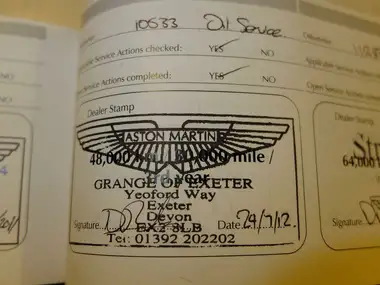 10533 Oil Service
Service Actions checked: YES NO
Service Actions completed: YES NO
Dealer Stamp
ASTON MARTIN
48,000 km / 30,000 mile /
3rd year
GRANGE OF EXETER
Yeoford Way
Exeter
Devon
EX2 8LB
Tel: 01392 202202
Signature
Date 24/7/12.
NO
NO
Applicable Service Actions
Open Service Actions
Dealer Stamp
64,000
Signature